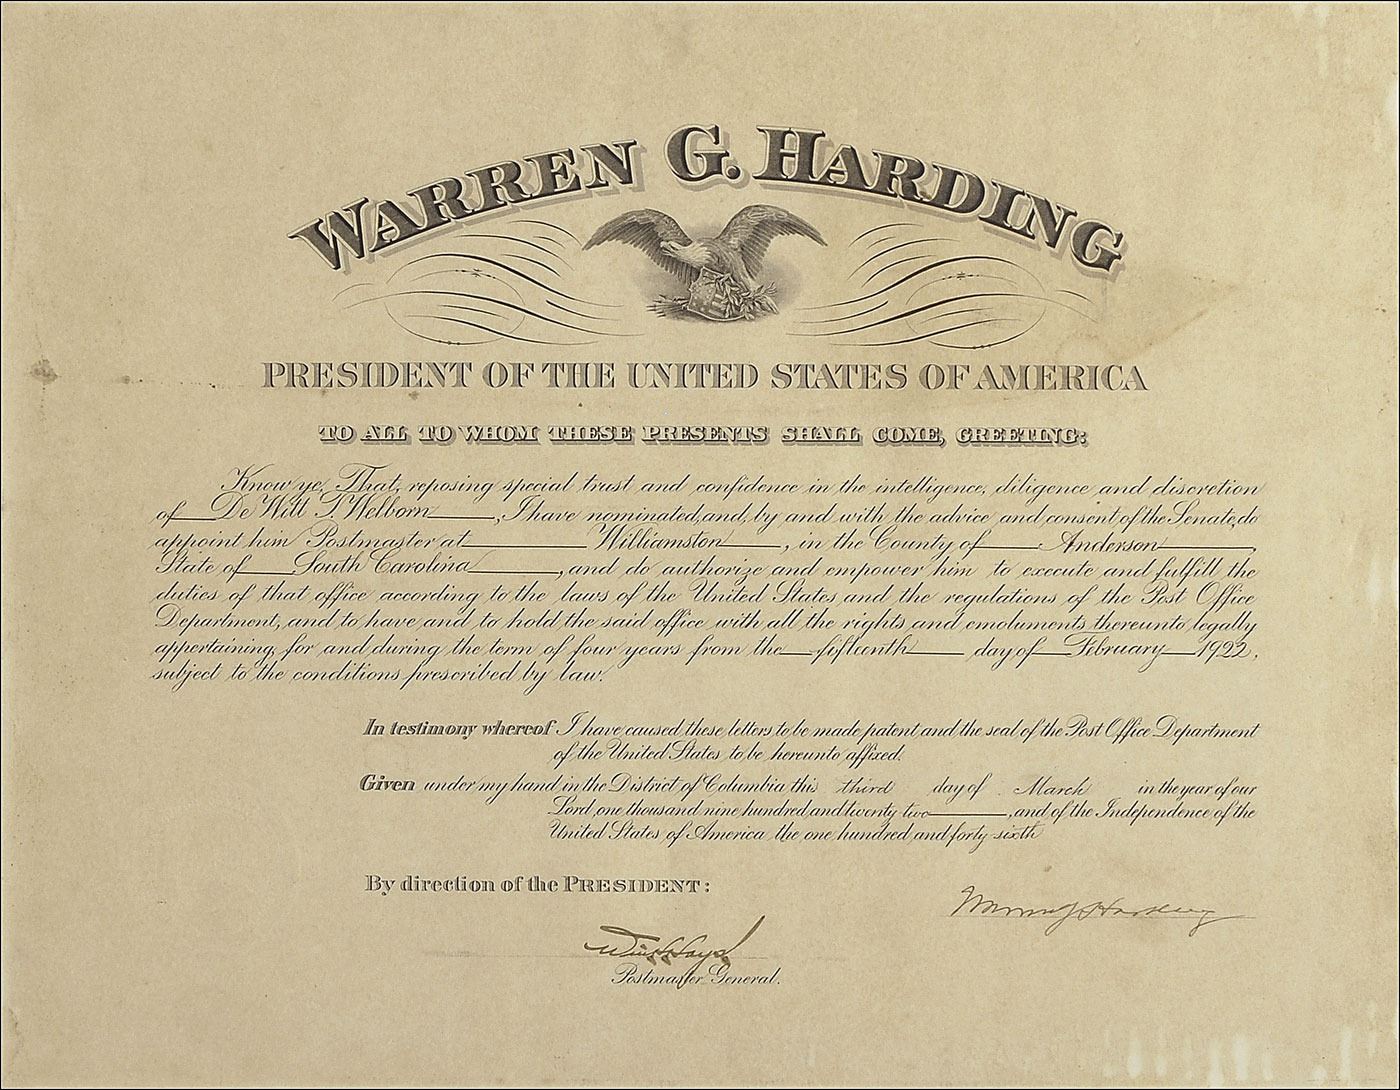 WARREN G. HARDING
PRESIDENT OF THE UNITED STATES OF AMERICA
TO ALL TO WHOM THESE PRESENTS SHALL COME, GREETING:
Know ye, That, reposing special trust and confidence in the intelligence, diligence and discretion
of De Witt T. Welborn, I have nominated, and, by and with the advice and consent of the Senate, do
appoint him Postmaster at Williamston, in the County of Anderson,
State of South Carolina, and do authorize and empower him to execute and fulfill the
duties of that office according to the laws of the United States and the regulations of the Post Office
Department, and to have and to hold the said office with all the rights and emoluments thereunto legally
appertaining, for and during the term of four years from the fifteenth day of February 1922,
subject to the conditions prescribed by law.
In testimony whereof I have caused these letters to be made patent and the seal of the Post Office Department
of the United States to be hereunto affixed.
Given under my hand in the District of Columbia this third day of March in the year of our
Lord, one thousand nine hundred and twenty two, and of the Independence of the
United States of America the one hundred and forty sixth
By direction of the PRESIDENT:
Warren G. Harding
Will H. Hays
Postmaster General.